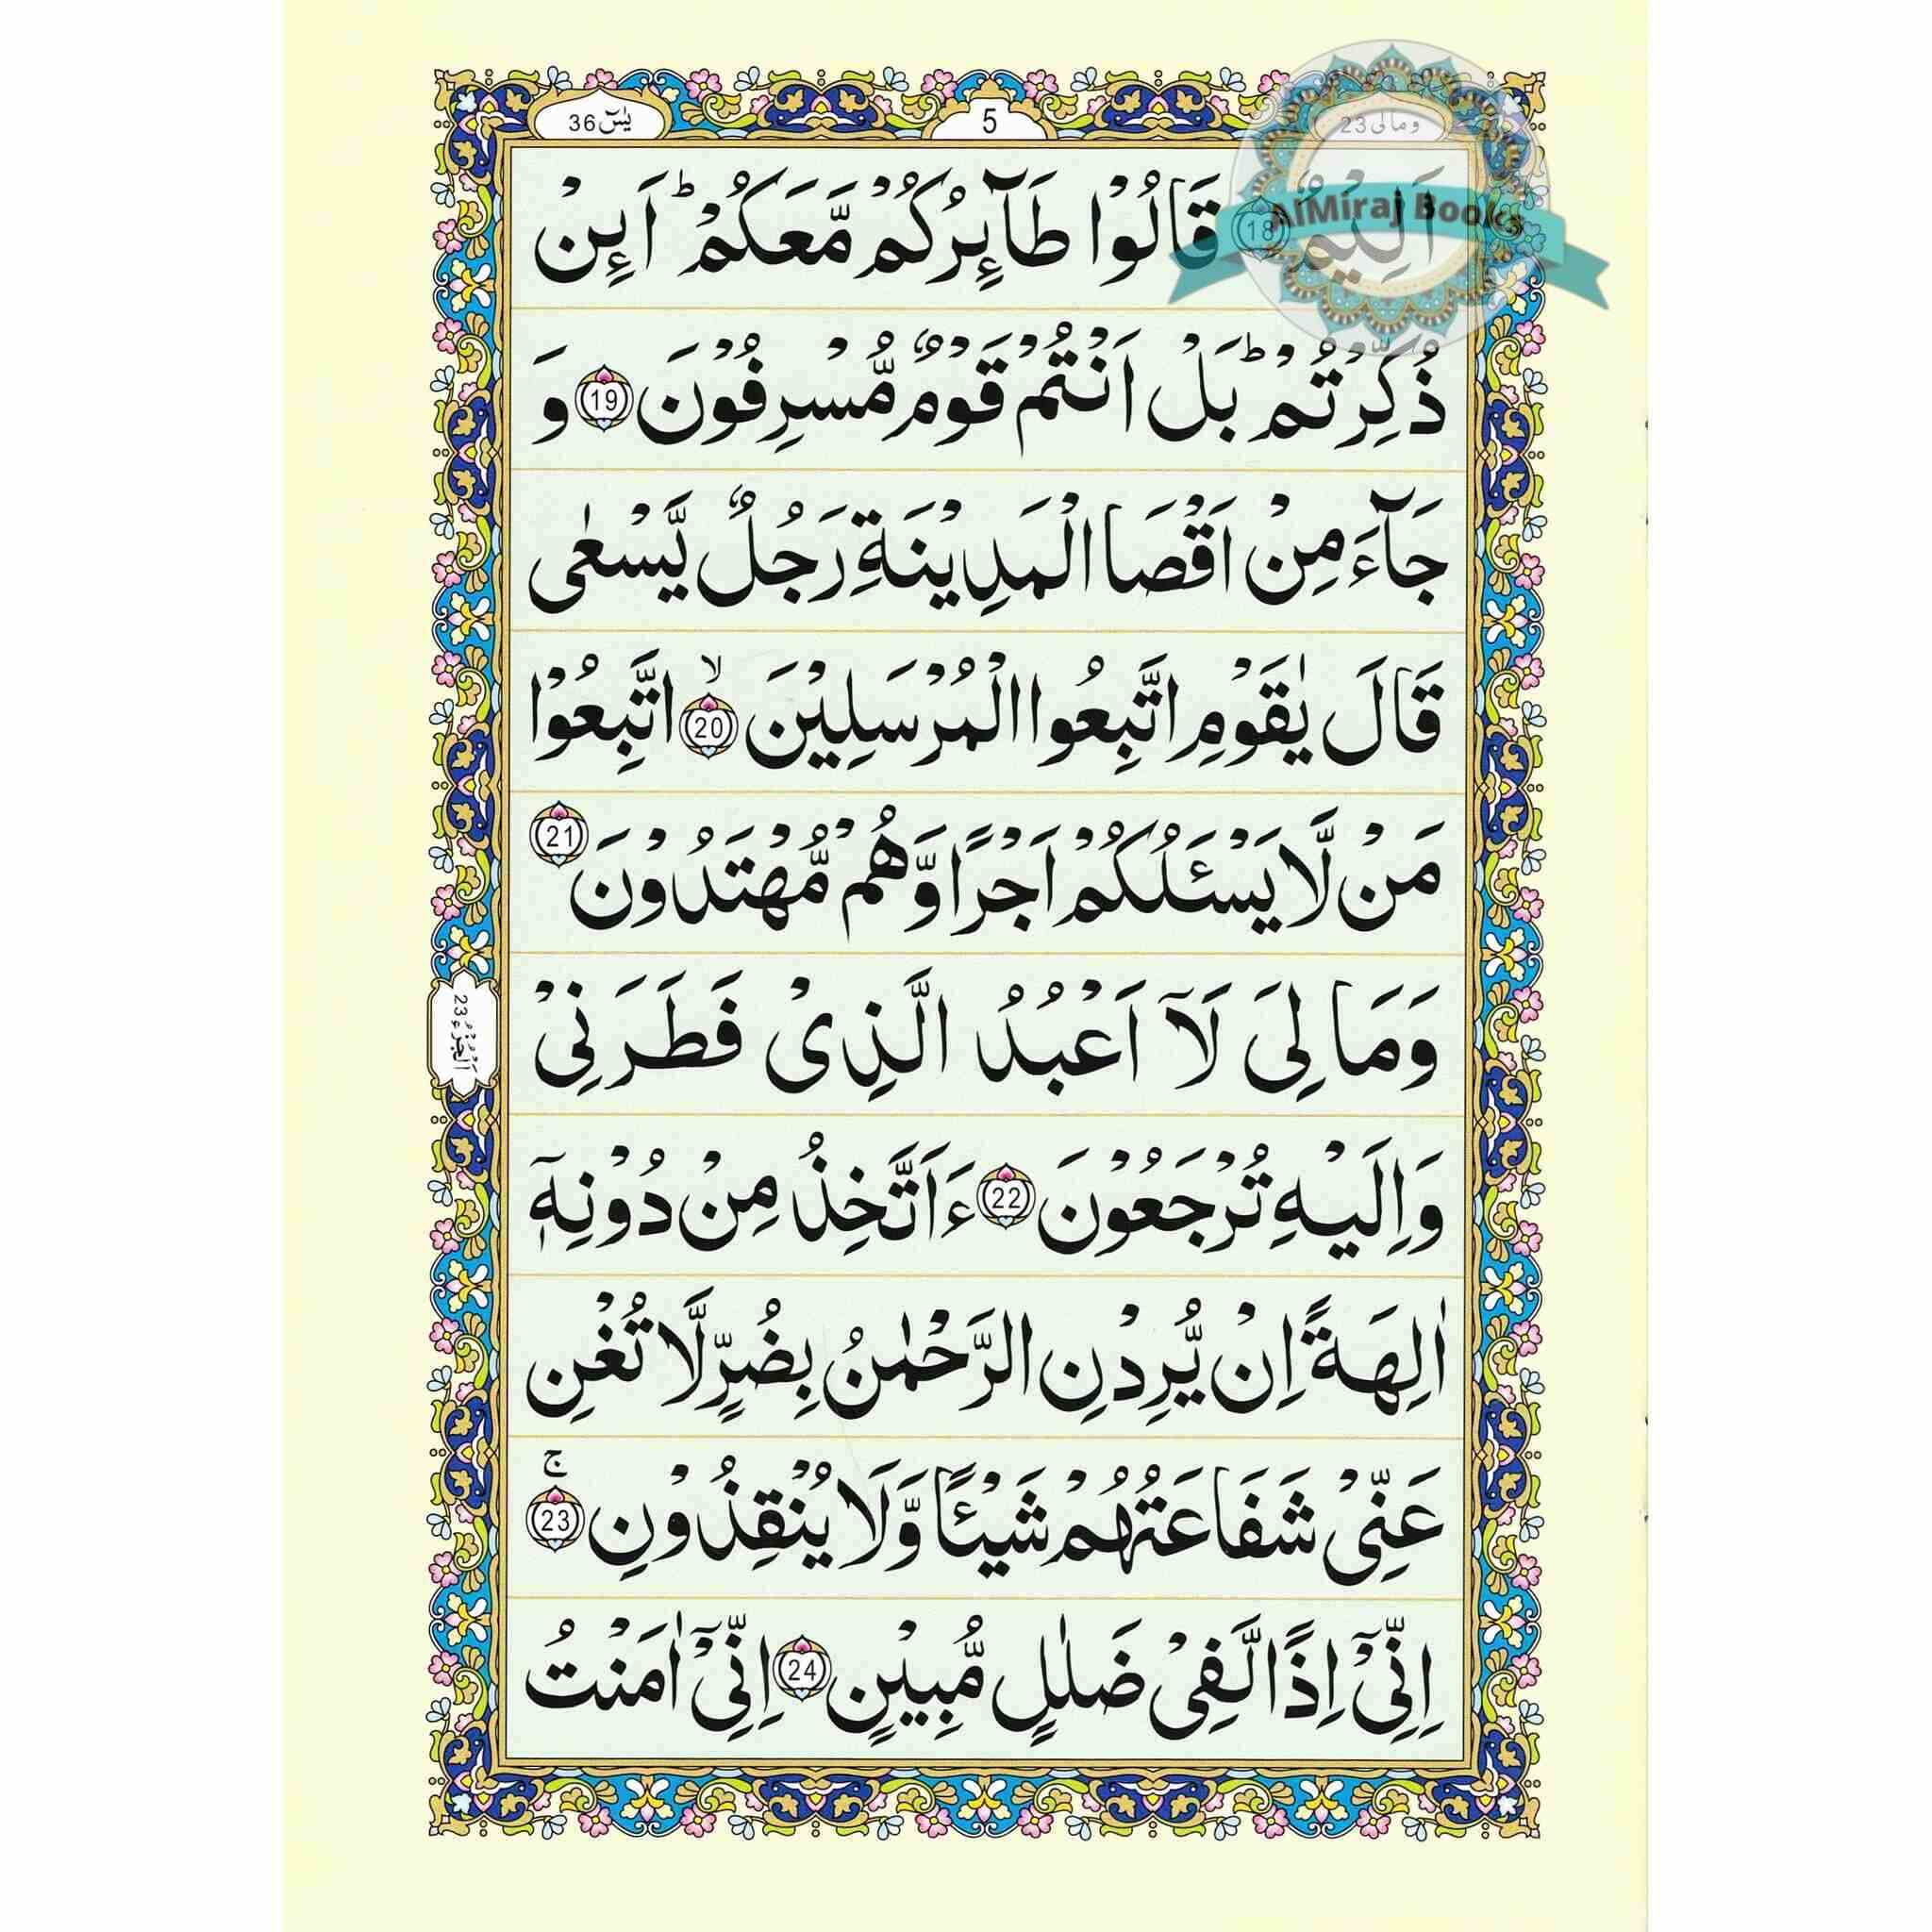 وما لی 23
5
یٰسٓ 36
AlMiraj Books
اَلِیْمٌ 18 قَالُوْا طَآئِرُكُمْ مَّعَكُمْ ؕ اَئِنْ
ذُكِّرْتُمْ ؕ بَلْ اَنْتُمْ قَوْمٌ مُّسْرِفُوْنَ 19 وَ
جَآءَ مِنْ اَقْصَا الْمَدِیْنَةِ رَجُلٌ یَّسْعٰى
قَالَ یٰقَوْمِ اتَّبِعُوا الْمُرْسَلِیْنَ ۙ 20 اتَّبِعُوْا
مَنْ لَّا یَسْـَٔلُكُمْ اَجْرًا وَّهُمْ مُّهْتَدُوْنَ 21
وَمَا لِیَ لَاۤ اَعْبُدُ الَّذِیْ فَطَرَنِیْ
وَاِلَیْهِ تُرْجَعُوْنَ 22 ءَاَتَّخِذُ مِنْ دُوْنِهٖۤ
اٰلِهَةً اِنْ یُّرِدْنِ الرَّحْمٰنُ بِضُرٍّ لَّا تُغْنِ
عَنِّیْ شَفَاعَتُهُمْ شَیْـًٔا وَّلَا یُنْقِذُوْنِ ۚ 23
اِنِّیْۤ اِذًا لَّفِیْ ضَلٰلٍ مُّبِیْنٍ 24 اِنِّیْۤ اٰمَنْتُ
اَلْجُزْءُ 23